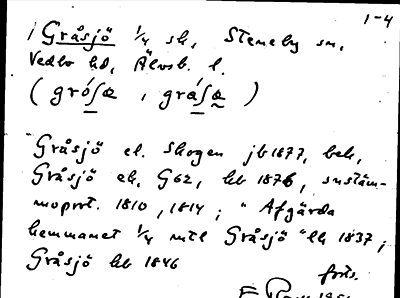 1-4
Gråsjö 1/4 sk, Steneby sn,
Vedbo hd, Älvsb. l.
(gróʃœ, gráʃœ)
Gråsjö el. Skogen jb 1877, beh,
Gråsjö ek, G62, hb 1876, snstäm-
moprot. 1810, 1814; "Afgärda
hemmanet 1/4 mtl Gråsjö" lh 1837;
Gråsjö hb 1846
forts.